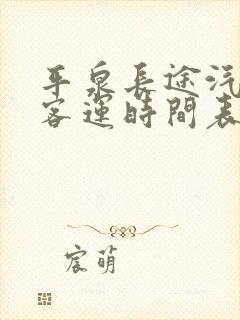 平泉長途汽
客運時間表
宸萌